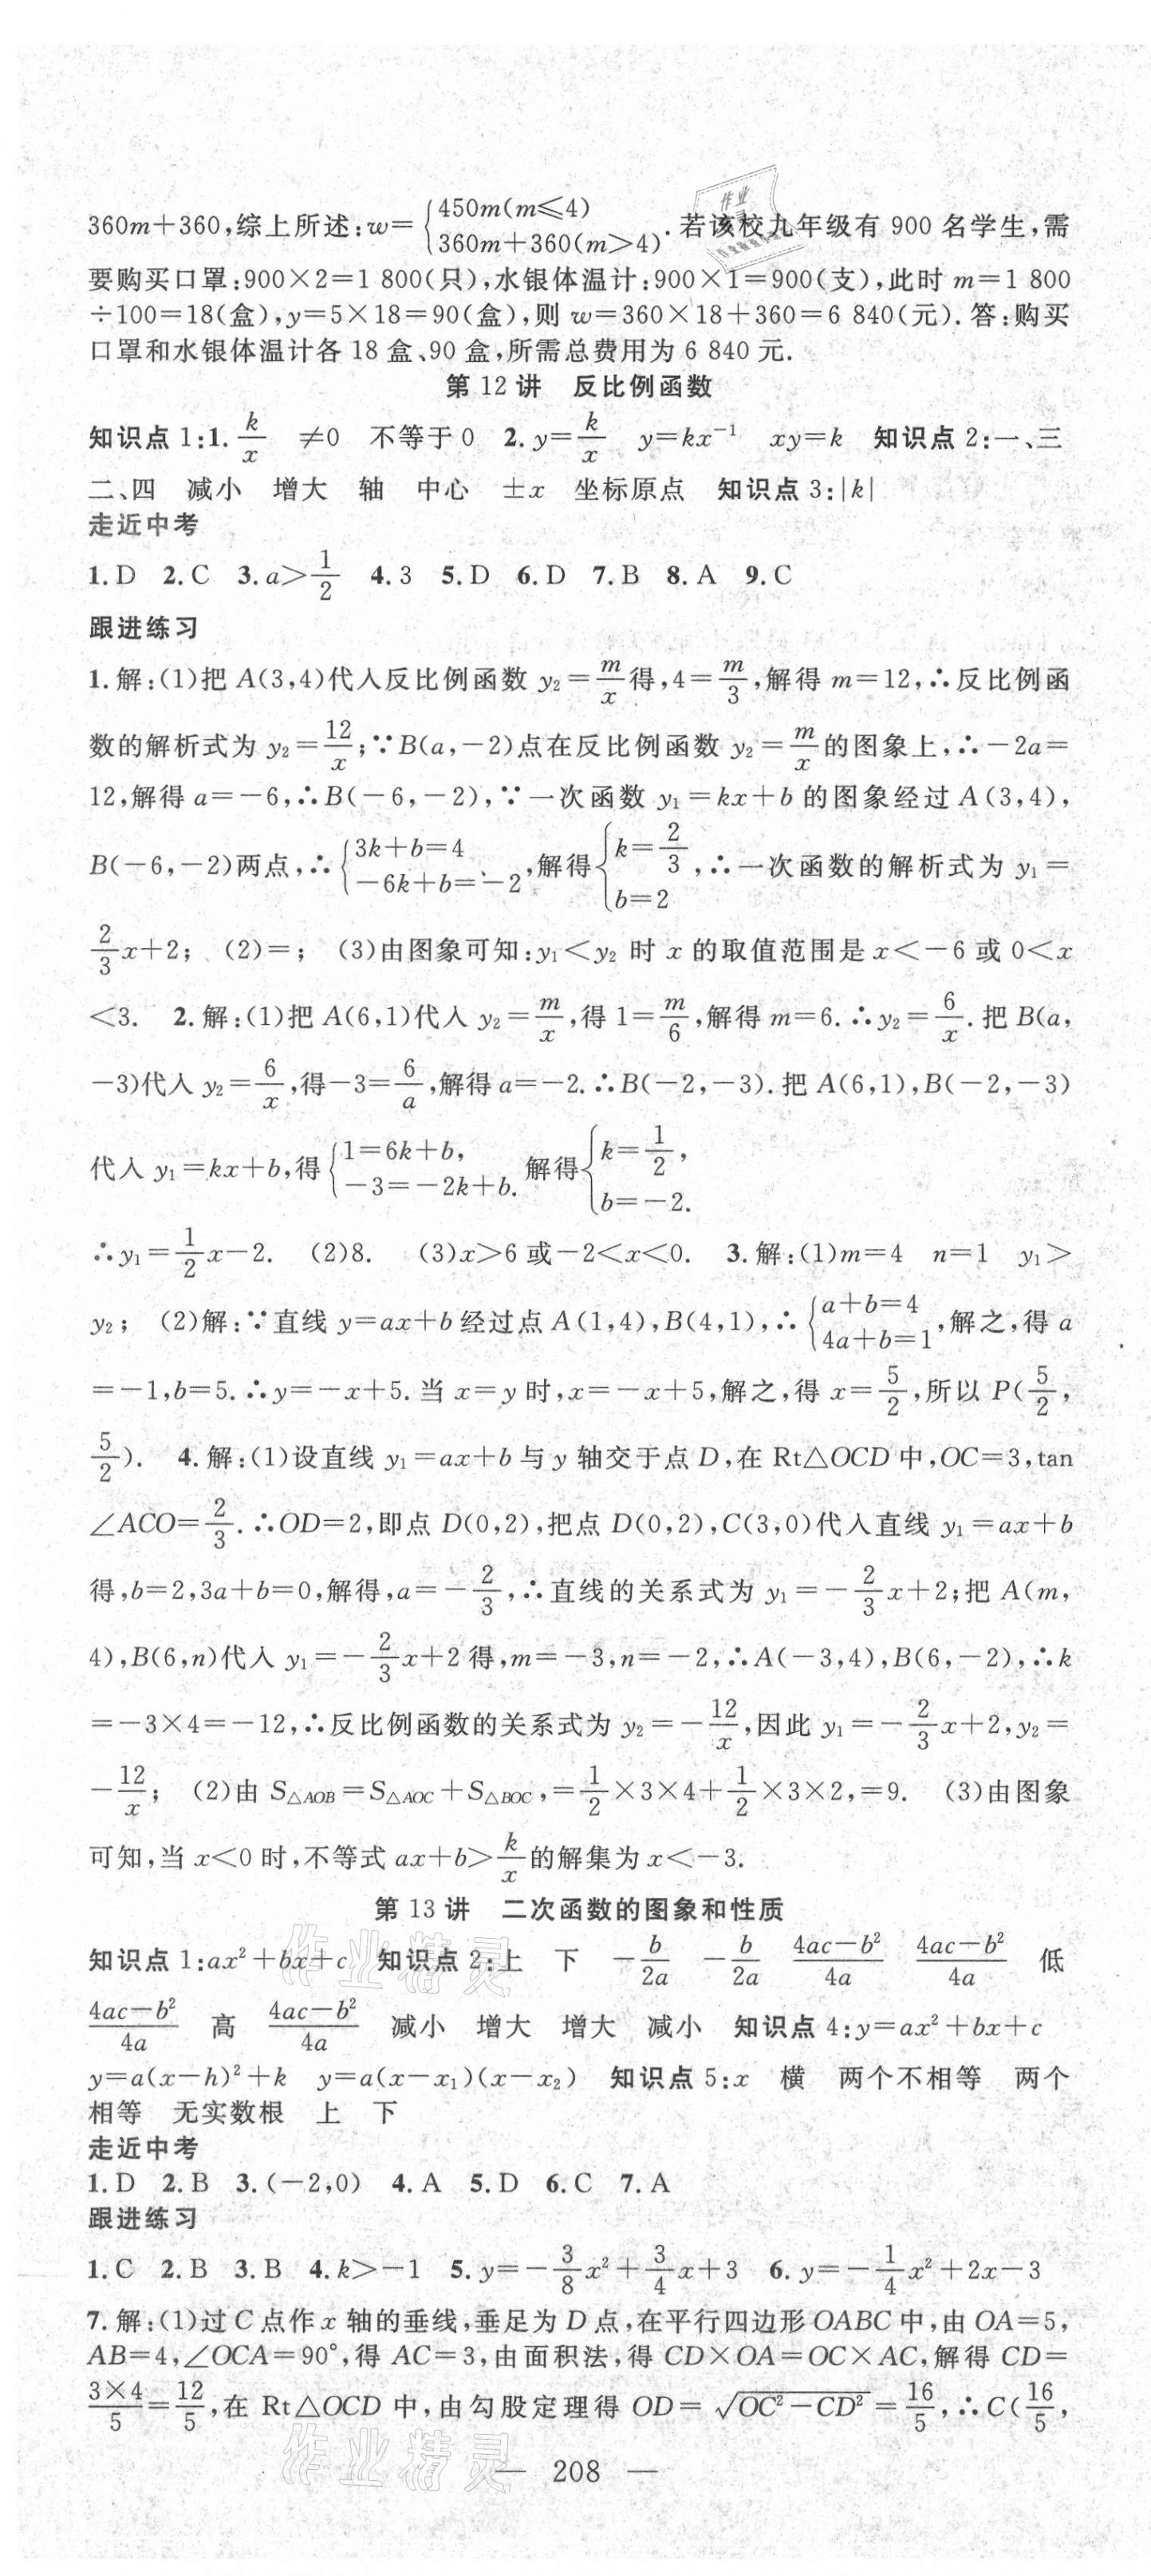 360m+360,综上所述:w={450m(m≤4) 360m+360(m>4).若该校九年级有 900 名学生,需
要购买口罩:900×2=1 800(只),水银体温计:900×1=900(支),此时 m=1 800
÷100=18(盒),y=5×18=90(盒),则 w=360×18+360=6 840(元).答:购买
口罩和水银体温计各 18 盒、90 盒,所需总费用为 6 840 元.
第 12 讲 反比例函数
知识点 1:1. k/x ≠0 不等于 0 2. y=k/x y=kx⁻¹ xy=k 知识点 2:一、三
二、四 减小 增大 轴 中心 ±x 坐标原点 知识点 3:|k|
走近中考
1. D 2. C 3. a>1/2 4. 3 5. D 6. D 7. B 8. A 9. C
跟进练习
1. 解:(1)把 A(3,4)代入反比例函数 y₂=m/x得,4=m/3,解得 m=12,∴反比例函
数的解析式为 y₂=12/x;∵B(a,-2)点在反比例函数 y₂=m/x的图象上,∴-2a=
12,解得 a=-6,∴B(-6,-2),∵一次函数 y₁=kx+b 的图象经过 A(3,4),
B(-6,-2)两点,∴{3k+b=4 -6k+b=-2,解得{k=2/3 b=2,∴一次函数的解析式为 y₁=
2/3x+2; (2)=; (3)由图象可知:y₁<y₂ 时 x 的取值范围是 x<-6 或 0<x
<3. 2. 解:(1)把 A(6,1)代入 y₂=m/x,得 1=m/6,解得 m=6.∴y₂=6/x.把 B(a,
-3)代入 y₂=6/x,得-3=6/a,解得 a=-2.∴B(-2,-3).把 A(6,1),B(-2,-3)
代入 y₁=kx+b,得{1=6k+b, -3=-2k+b. 解得{k=1/2, b=-2.
∴y₁=1/2x-2. (2)8. (3)x>6 或-2<x<0. 3. 解:(1)m=4 n=1 y₁>
y₂; (2)解:∵直线 y=ax+b 经过点 A(1,4),B(4,1),∴{a+b=4 4a+b=1,解之,得 a
=-1,b=5.∴y=-x+5.当 x=y 时,x=-x+5,解之,得 x=5/2,所以 P(5/2,
5/2). 4. 解:(1)设直线 y₁=ax+b 与 y 轴交于点 D,在 Rt△OCD 中,OC=3,tan
∠ACO=2/3.∴OD=2,即点 D(0,2),把点 D(0,2),C(3,0)代入直线 y₁=ax+b
得,b=2,3a+b=0,解得,a=-2/3,∴直线的关系式为 y₁=-2/3x+2;把 A(m,
4),B(6,n)代入 y₁=-2/3x+2 得,m=-3,n=-2,∴A(-3,4),B(6,-2),∴k
=-3×4=-12,∴反比例函数的关系式为 y₂=-12/x,因此 y₁=-2/3x+2,y₂=
-12/x; (2)由 S△AOB=S△AOC+S△BOC,=1/2×3×4+1/2×3×2,=9. (3)由图象
可知,当 x<0 时,不等式 ax+b>k/x的解集为 x<-3.
第 13 讲 二次函数的图象和性质
知识点 1:ax²+bx+c 知识点 2:上 下 -b/2a -b/2a (4ac-b²)/4a (4ac-b²)/4a 低
(4ac-b²)/4a 高 (4ac-b²)/4a 减小 增大 增大 减小 知识点 4:y=ax²+bx+c
y=a(x-h)²+k y=a(x-x₁)(x-x₂) 知识点 5:x 横 两个不相等 两个
相等 无实数根 上 下
走近中考
1. D 2. B 3. (-2,0) 4. A 5. D 6. C 7. A
跟进练习
1. C 2. B 3. B 4. k>-1 5. y=-3/8x²+3/4x+3 6. y=-1/4x²+2x-3
7. 解:(1)过 C 点作 x 轴的垂线,垂足为 D 点,在平行四边形 OABC 中,由 OA=5,
AB=4,∠OCA=90°,得 AC=3,由面积法,得 CD×OA=OC×AC,解得 CD=
3×4/5=12/5,在 Rt△OCD 中,由勾股定理得 OD=√(OC²-CD²)=16/5,∴C(16/5,
— 208 —
作业精灵
作业精灵